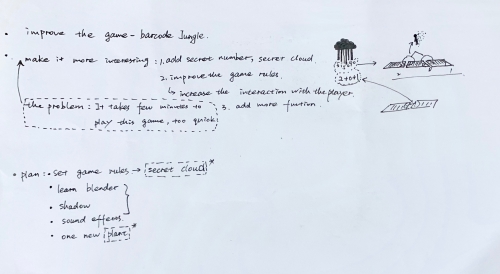 • improve the game - barcode Jungle.
• make it more interesting : 1. add secret number, secret cloud.
2. improve the game rules.
↳ increase the interaction with the player.
3. add more funtion.
the problem : It takes few minutes to
play this game, too quick
• plan : • set game rules → secret cloud *
• learn blender
• shadow
• sound effects.
• one new plant *